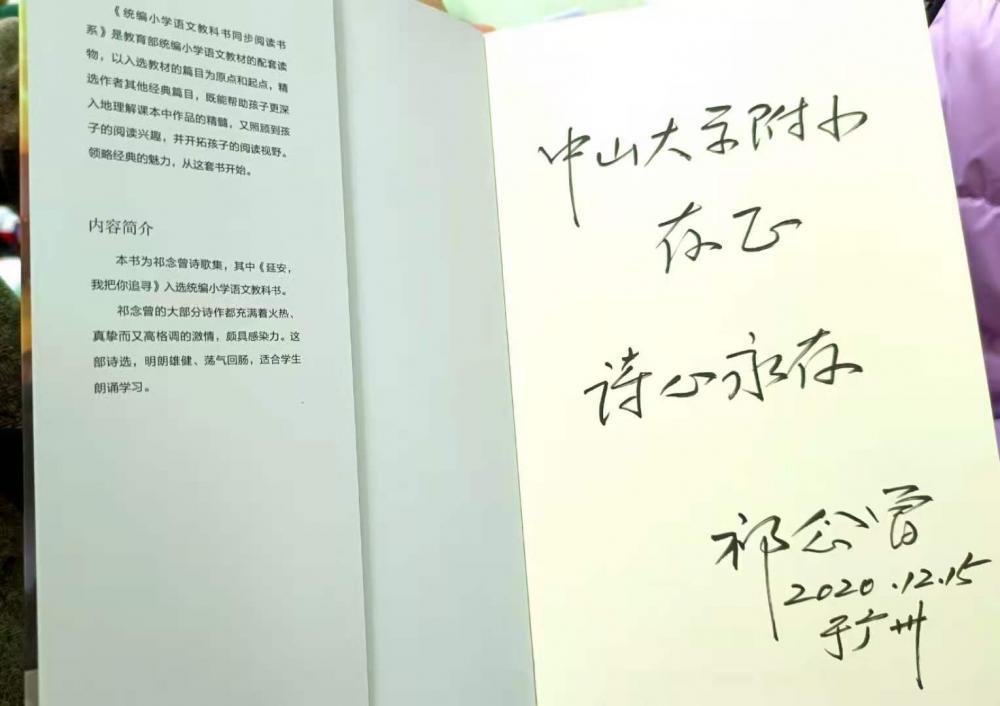 《统编小学语文教科书同步阅读书
系》是教育部统编小学语文教材的配套读
物，以入选教材的篇目为原点和起点，精
选作者其他经典篇目，既能帮助孩子更深
入地理解课本中作品的精髓，又照顾到孩
子的阅读兴趣，并开拓孩子的阅读视野。
领略经典的魅力，从这套书开始。
内容简介
本书为祁念曾诗歌集，其中《延安，
我把你追寻》入选统编小学语文教科书。
祁念曾的大部分诗作都充满着火热、
真挚而又高格调的激情，颇具感染力。这
部诗选，明朗雄健、荡气回肠，适合学生
朗诵学习。
中山大学附小
存正
诗心永存
祁念曾
2020.12.15
于广州